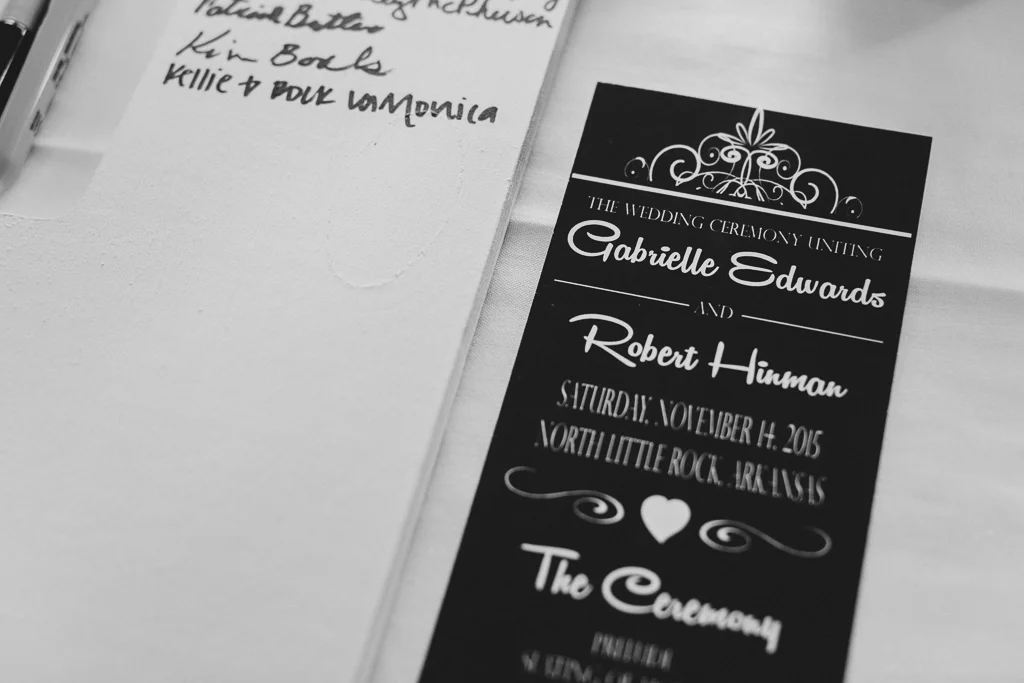 McPherson
Patrick Butler
Kim Boals
Kellie &
THE WEDDING CEREMONY UNITING
Gabrielle Edwards
AND
Robert Hinman
SATURDAY, NOVEMBER 14, 2015
NORTH LITTLE ROCK, ARKANSAS
The Ceremony
PRELUDE
SEATING OF